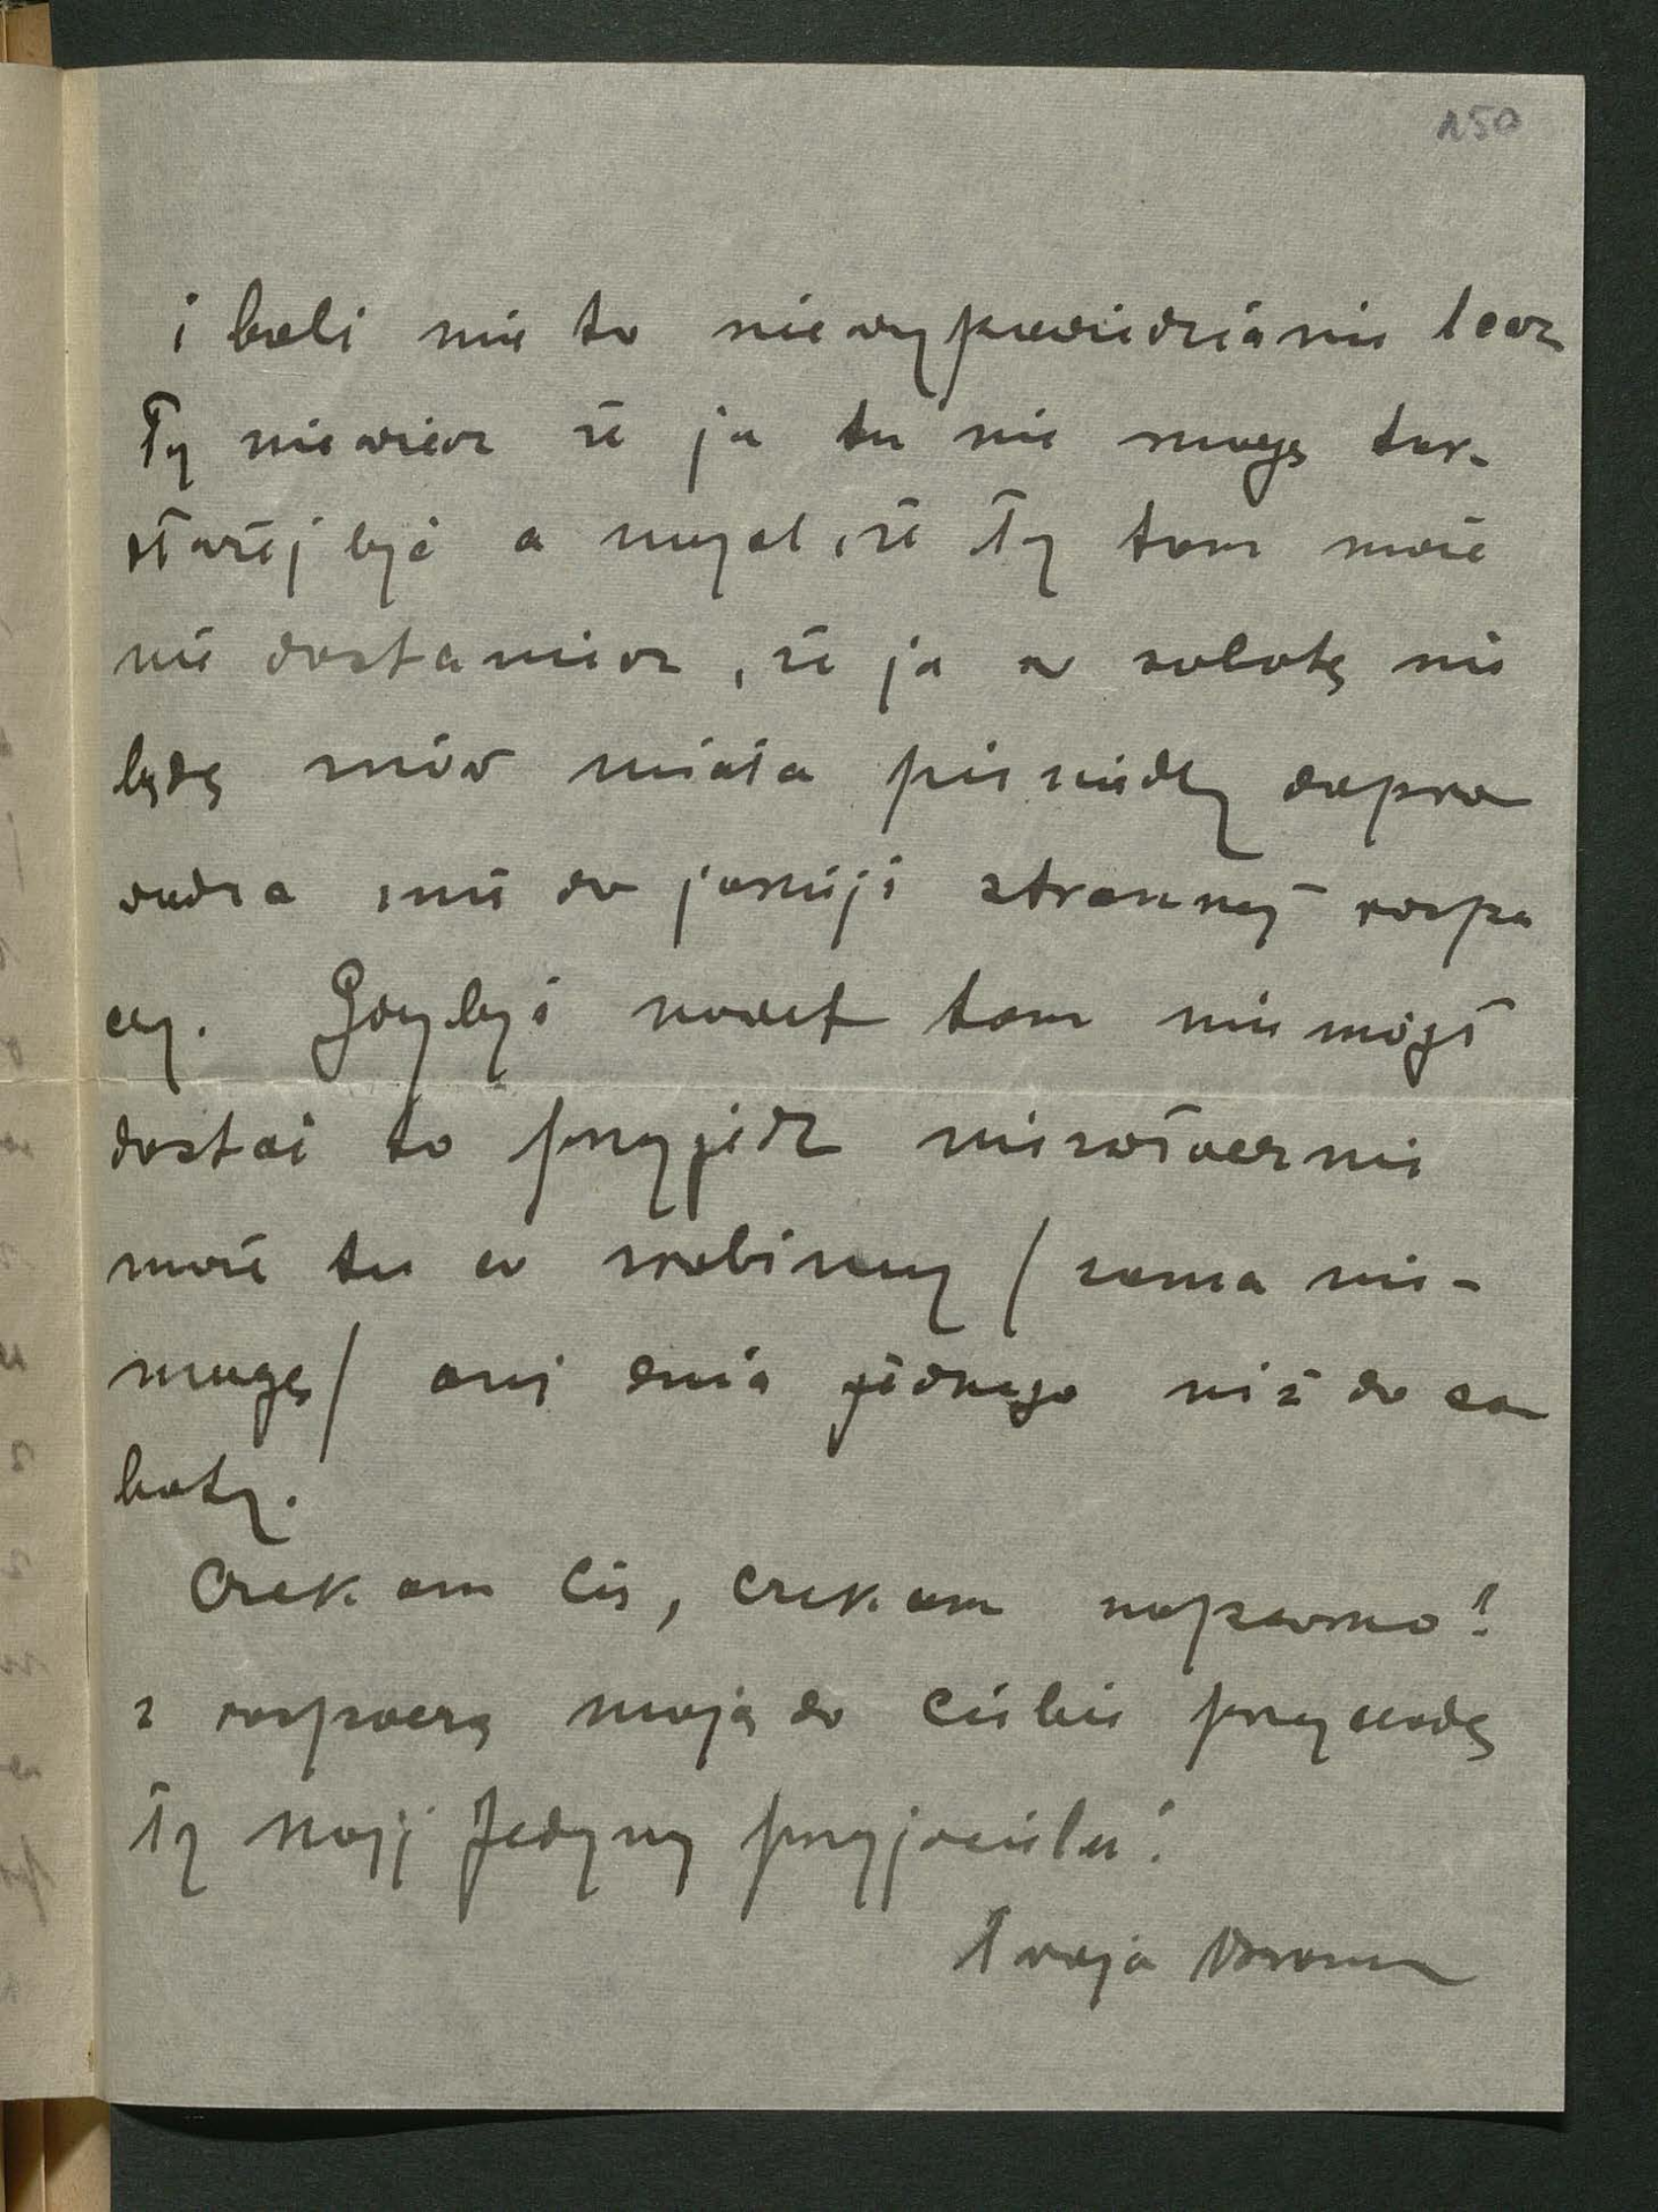 150
i boli mie to niewypowiedzianie lecz
Ty niewiesz że ja tu nie mogę tar-
dłużej być a myśl, że Ty tam może
nie dostaniesz, że ja w sobotę nie
będę znów miała pieniędzy dopro
wadza mię do jakiejś strasznej rozpa
czy. Gdybyś nawet tam nie mógł
dostać to przyjedź niezwłocznie
może tu co zrobimy / sama nie-
mogę / ani dnia jednego niż do so
boty.
Czekam Cię, czekam napewno!
z rozpaczą moją do Ciebie przychodzę
Ty mój Jedyny przyjacielu!
Twoja